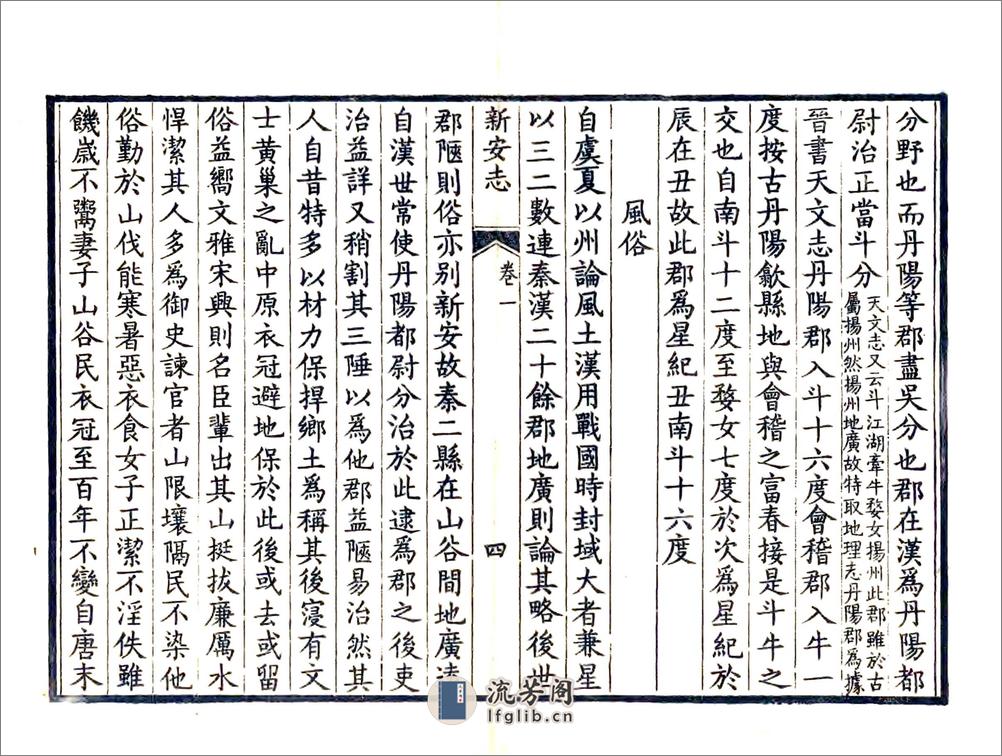 分野也而丹陽等郡盡吳分也郡在漢爲丹陽都
尉治正當斗分天文志又云斗江湖牽牛婺女揚州此郡雖於古
屬揚州然揚州地廣故特取地理志丹陽郡爲據
晉書天文志丹陽郡入斗十六度會稽郡入牛一
度按古丹陽歙縣地與會稽之富春接是斗牛之
交也自南斗十二度至婺女七度於次爲星紀於
辰在丑故此郡爲星紀丑南斗十六度
風俗
自虞夏以州論風土漢用戰國時封域大者兼星
以三二數連秦漢二十餘郡地廣則論其略後世
新安志
卷一
四
郡陿則俗亦別新安故秦二縣在山谷間地廣遠
自漢世常使丹陽都尉分治於此逮爲郡之後吏
治益詳又稍割其三陲以爲他郡益陿易治然其
人自昔特多以材力保捍鄉土爲稱其後寖有文
士黃巢之亂中原衣冠避地保於此後或去或留
俗益嚮文雅宋興則名臣輩出其山挺拔廉厲水
悍潔其人多爲御史諫官者山限壤隔民不染他
俗勤於山伐能寒暑惡衣食女子正潔不淫佚雖
饑歲不鬻妻子山谷民衣冠至百年不變自唐末
流芳阁
lfglib.cn